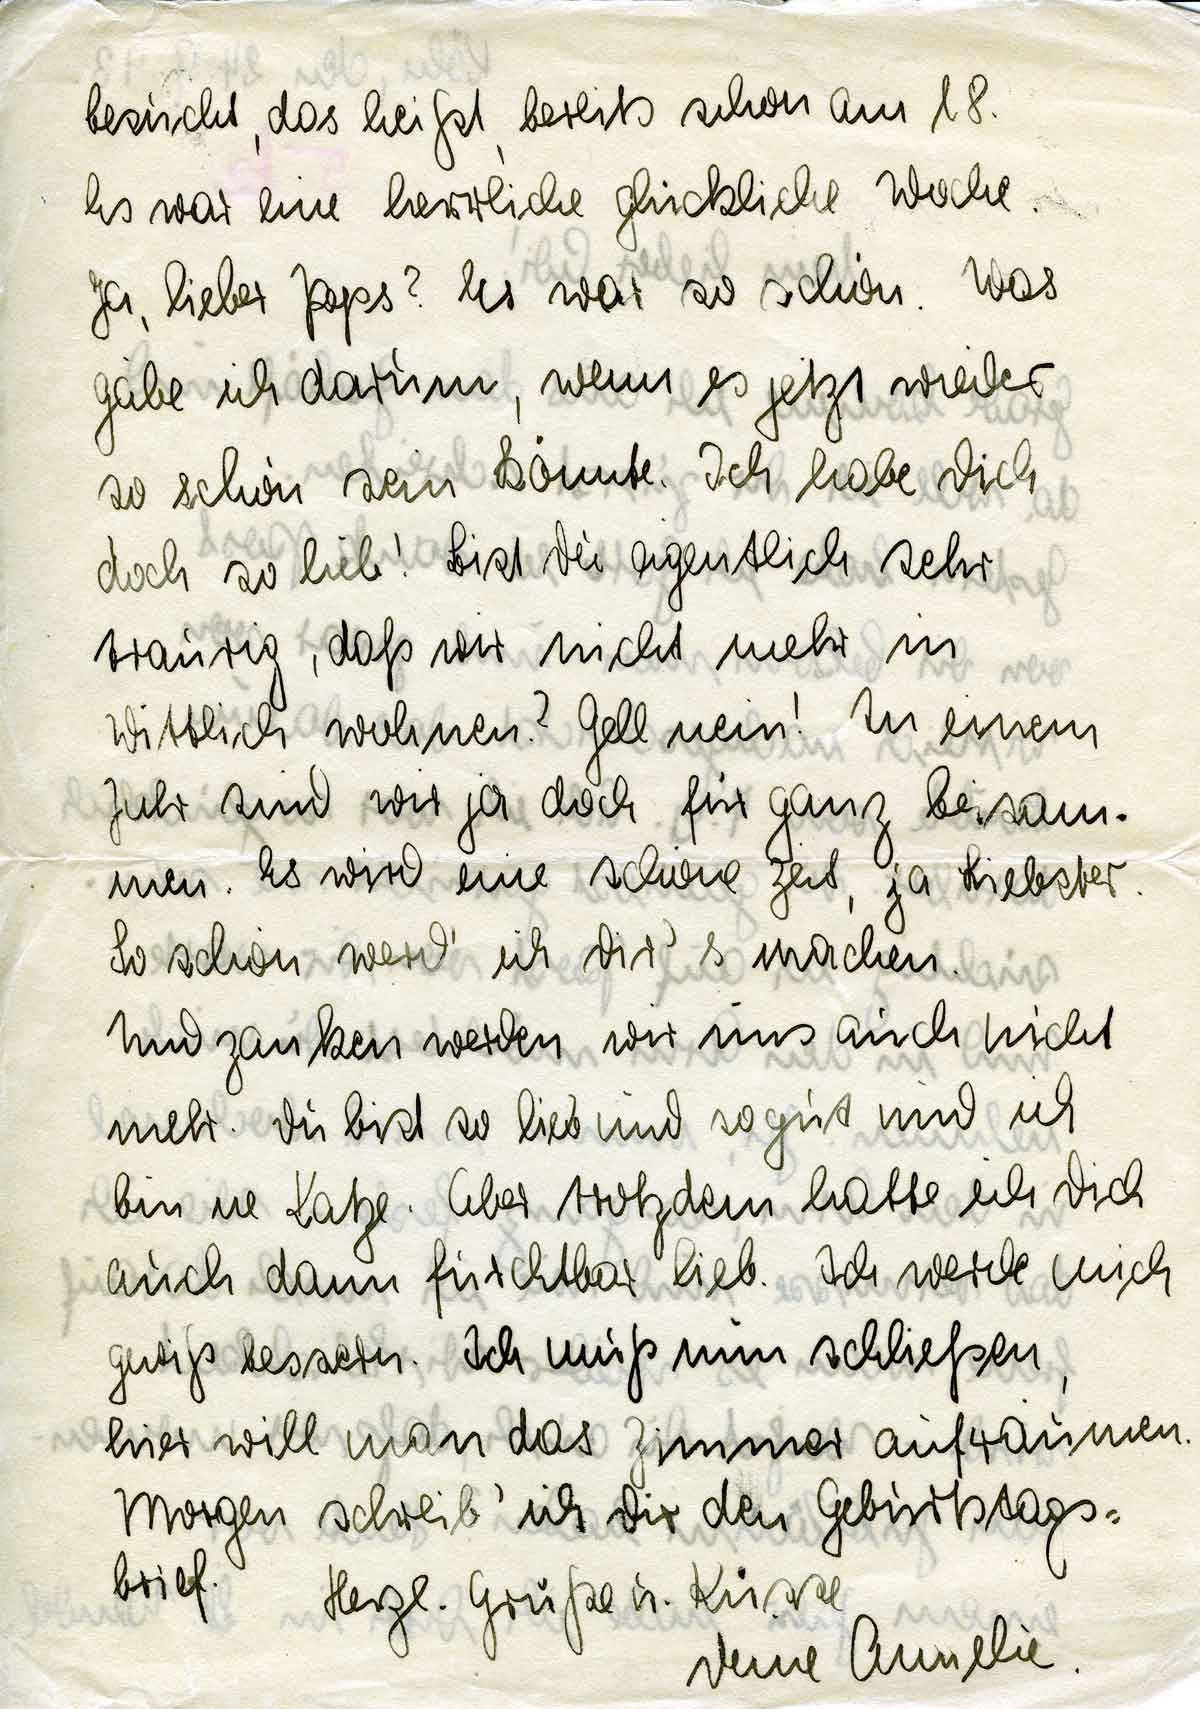 besucht, das heißt, bereits schon am 18.
Es war eine herrliche glückliche Woche.
Ja, lieber Pops? Es war so schön. Was
gäbe ich darum, wenn es jetzt wieder
so schön sein könnte. Ich habe Dich
doch so lieb! Bist Du eigentlich sehr
traurig, daß wir nicht mehr in
Wittlich wohnen? Gell nein! In einem
Jahr sind wir ja doch für ganz beisam-
men. Es wird eine schöne Zeit, ja Liebster.
So schön werd' ich Dir's machen.
Und zanken werden wir uns auch nicht
mehr. Du bist so lieb und so gut und ich
bin ne Katze. Aber trotzdem hatte ich Dich
auch dann furchtbar lieb. Ich werde mich
gewiß bessern. Ich muß nun schließen,
hier will man das Zimmer aufräumen.
Morgen schreib' ich Dir den Geburtstags=
brief. Herzl. Grüße u. Küsse
Deine Annelie.